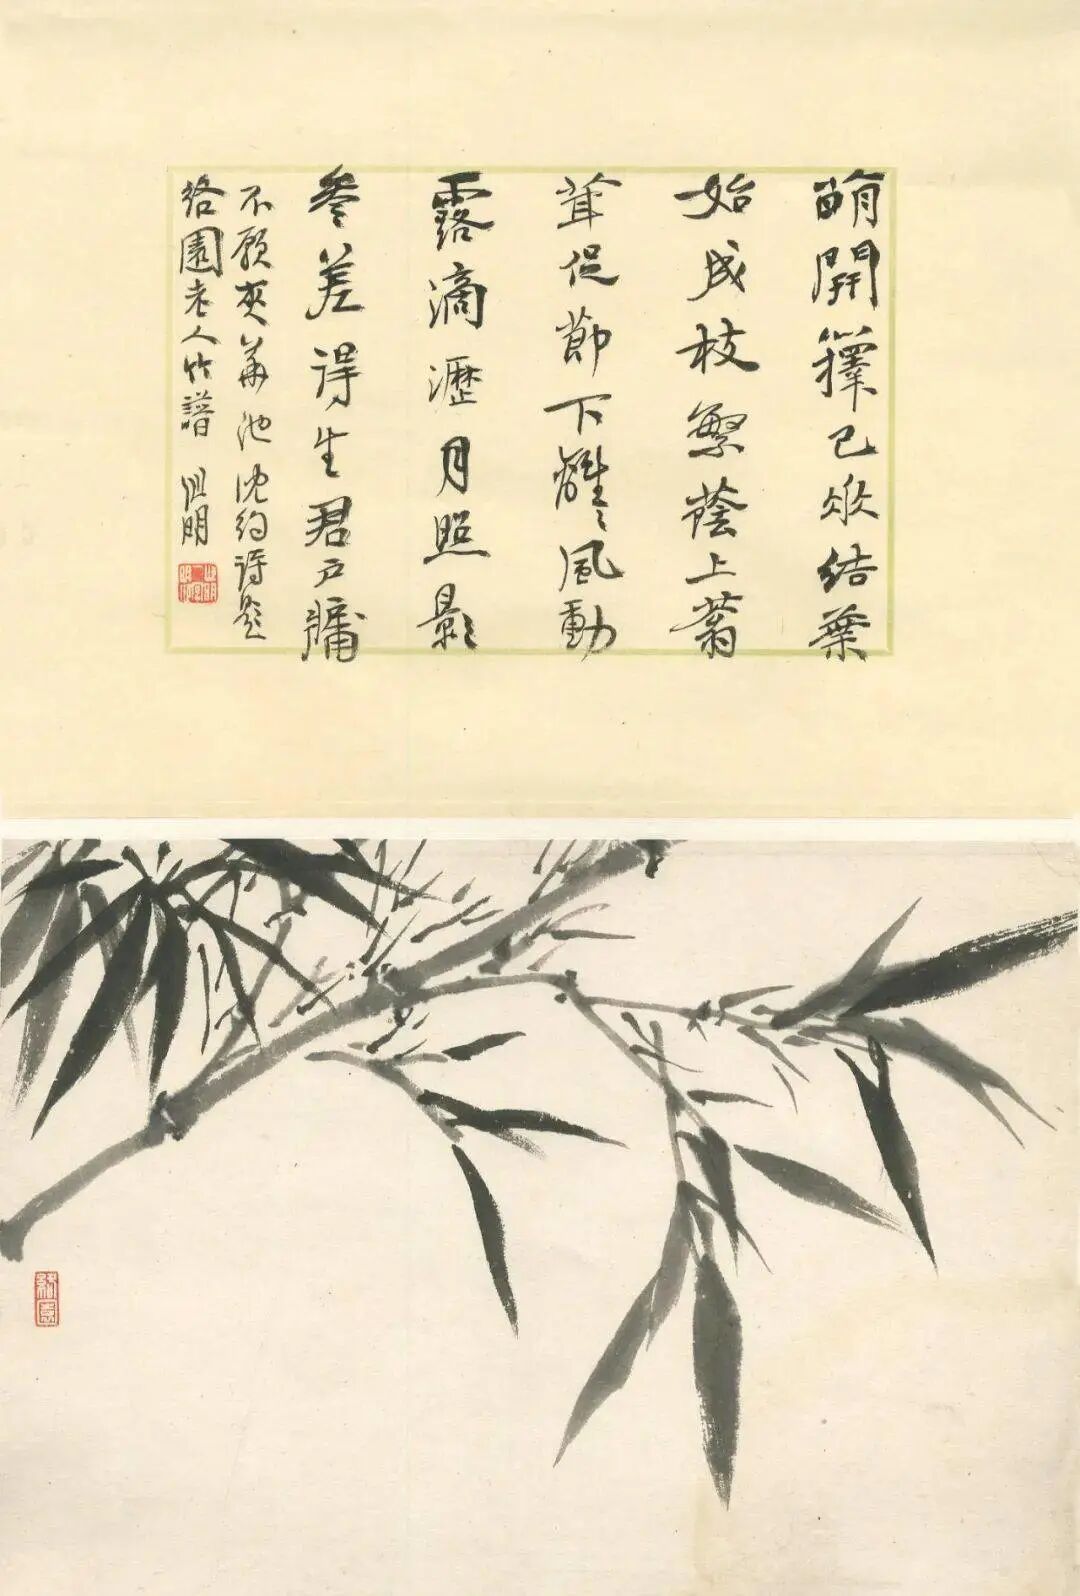 萌開籜已垂結葉
始成枝繁蔭上蓊
茸促節下離〻風動
露滴瀝月照影
參差得生君戶牖
不願夾華池 沈約詩題
絡園老人竹譜 明
絡園